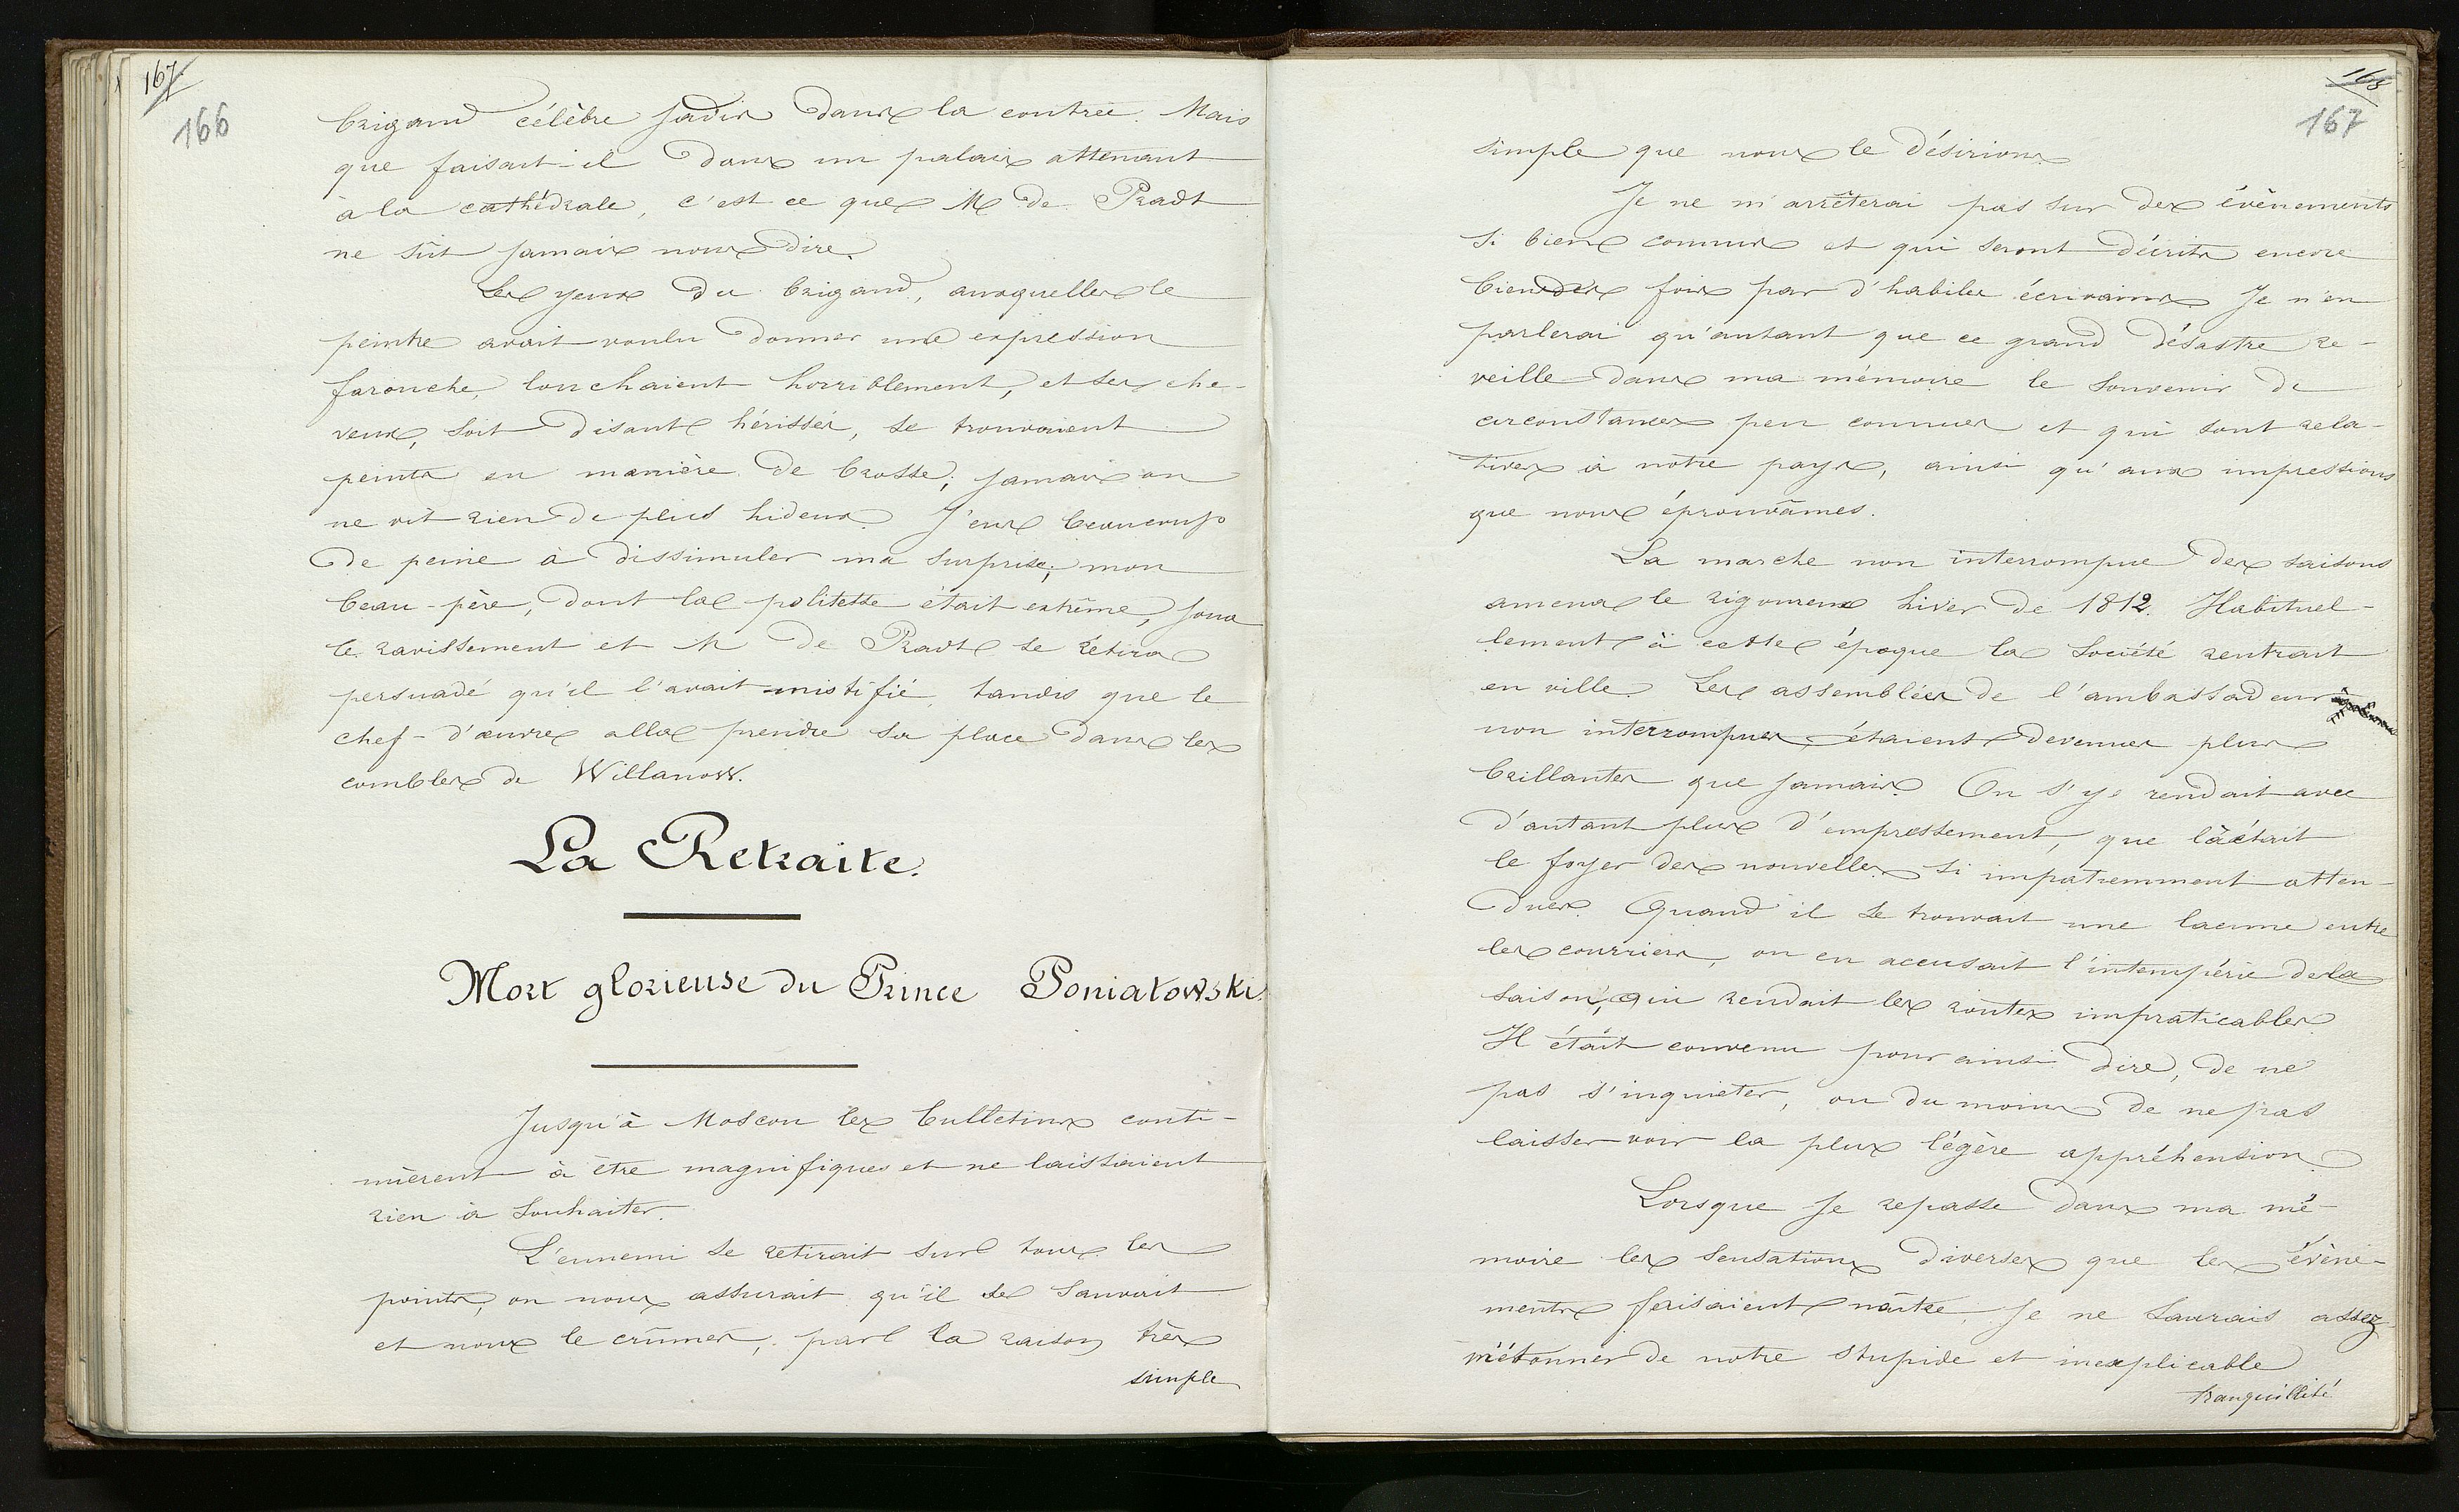 167
166
brigand célèbre jadis dans la contrée. Mais
que faisait-il dans un palais attenant
à la cathédrale, c'est ce que M. de Pradt
ne sût jamais nous dire.
Les yeux du brigand, auxquelles le
peintre avait voulu donner une expression
farouche, louchaient horriblement, et ses che-
veux, soit disant hérissés, se trouvaient
peints en manière de brosse; jamais on
ne vit rien de plus hideux. J'eus beaucoup
de peine à dissimuler ma surprise; mon
beau-père, dont la politesse était extrême, joua
le ravissement et M de Pradt se retira
persuadé qu'il l'avait mistifié, tandis que le
chef-d'œuvre alla prendre sa place dans les
combles de Willanow.
La Retraite.
Mort glorieuse du Prince Poniatowski.
Jusqu'à Moscou les bulletins conti-
nuèrent à être magnifiques et ne laissaient
rien à souhaiter.
L'ennemi se retirait sur tous les
points, on nous assurait qu'il se sauvait
et nous le crûmes, par la raison très
simple
168
167
simple que nous le désirions
Je ne m'arrêterai pas sur des évènements
si bien connus et qui seront décrits encore
bien des fois par d'habiles écrivains. Je n'en
parlerai qu'autant que ce grand désastre re-
veille dans ma mémoire le souvenir de
circonstances peu connues et qui sont rela-
tives à notre pays, ainsi qu'aux impressions
que nous éprouvâmes.
La marche non interrompue des saisons
amena le rigoureux hiver de 1812. Habituel-
lement à cette époque la société rentrait
en ville. Les assemblées de l'ambassadeur
non interrompues, étaient devenues plus
brillantes que jamais. On s'y rendait avec
d'autant plus d'empressement, que là était
le foyer des nouvelles si impatiemment atten-
dues. Quand il se trouvait une lacune entre
les courriers, on en accusait l'intempérie de la
saison, qui rendait les routes impraticables
Il était convenu pour ainsi dire, de ne
pas s'inquiéter, ou du moins de ne pas
laisser voir la plus légère appréhension.
Lorsque je repasse dans ma mé-
moire les sensations diverses que les évène-
ments faisaient naître, je ne saurais assez
m'étonner de notre stupide et inexplicable
tranquillité